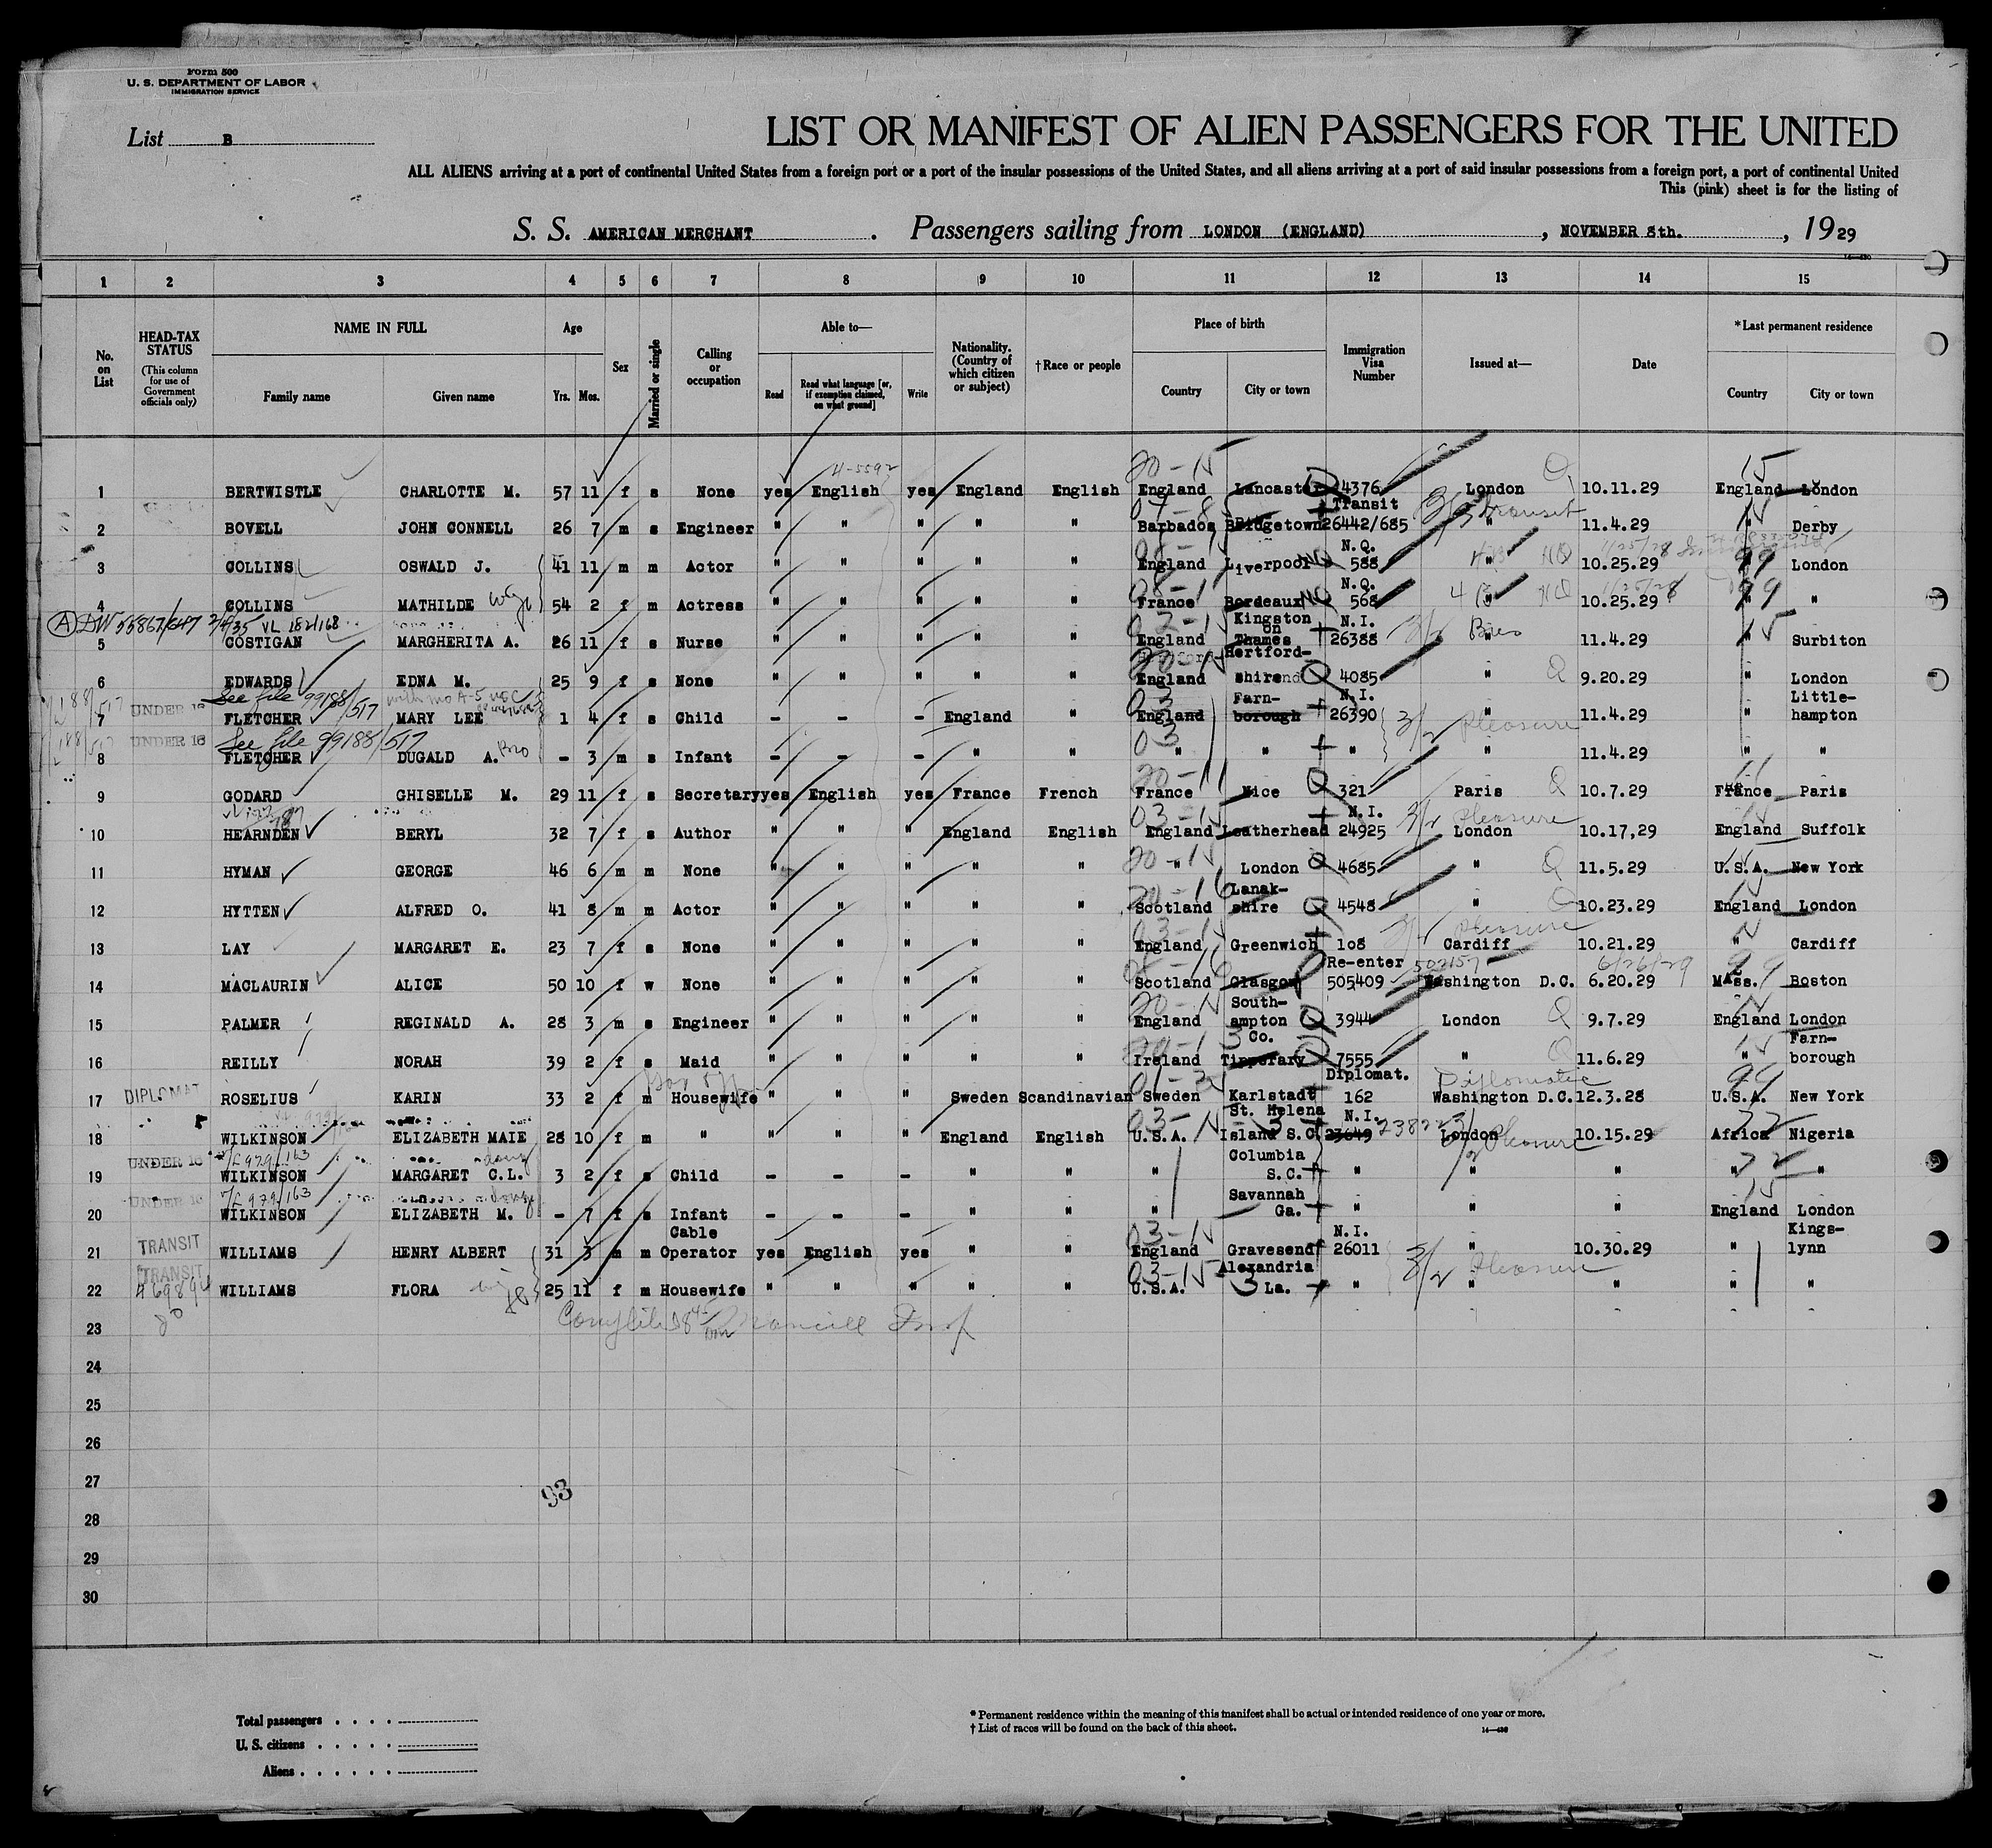 Form 500
U. S. DEPARTMENT OF LABOR
IMMIGRATION SERVICE
List B
LIST OR MANIFEST OF ALIEN PASSENGERS FOR THE UNITED
ALL ALIENS arriving at a port of continental United States from a foreign port or a port of the insular possessions of the United States, and all aliens arriving at a port of said insular possessions from a foreign port, a port of continental United
This (pink) sheet is for the listing of
S. S. AMERICAN MERCHANT. Passengers sailing from LONDON (ENGLAND), NOVEMBER 8th., 1929
1 2 3 4 5 6 7 8 9 10 11 12 13 14 15
No. on List
HEAD-TAX STATUS (This column for use of Government officials only)
NAME IN FULL
Family name Given name
Age
Yrs. Mos.
Sex
Married or single
Calling or occupation
Able to—
Read
Read what language [or, if exemption claimed, on what ground]
Write
Nationality. (Country of which citizen or subject)
†Race or people
Place of birth
Country City or town
Immigration Visa Number
Issued at—
Date
*Last permanent residence
Country City or town
1 BERTWISTLE CHARLOTTE M. 57 11 f s None yes English yes England English England Lancaster 4376 London 10.11.29 England London
2 BOVELL JOHN CONNELL 26 7 m s Engineer " " " " " Barbados Bridgetown Transit 26442/685 " 11.4.29 " Derby
3 COLLINS OSWALD J. 41 11 m m Actor " " " " " England Liverpool N.Q. 588 " 10.25.29 " London
4 COLLINS MATHILDE 54 2 f m Actress " " " " " France Bordeaux N.Q. 568 " 10.25.29 " "
5 COSTIGAN MARGHERITA A. 26 11 f s Nurse " " " " " England Kingston on Thames N.I. 26388 " 11.4.29 " Surbiton
6 EDWARDS EDNA M. 25 9 f s None " " " " " England Hertford-shire 4085 " 9.20.29 " London
See file 99188/517
UNDER 16
7 FLETCHER MARY LEE 1 4 f s Child - - - England " England Farn-borough N.I. 26390 " 11.4.29 " Little-hampton
See file 99188/517
UNDER 16
8 FLETCHER DUGALD A. - 3 m s Infant - - - " " " " " " 11.4.29 " "
9 GODARD GHISELLE M. 29 11 f s Secretary yes English yes France French France Nice 321 Paris 10.7.29 France Paris
10 HEARNDEN BERYL 32 7 f s Author " " " England English England Leatherhead N.I. 24925 London 10.17,29 England Suffolk
11 HYMAN GEORGE 46 6 m m None " " " " " " London 4685 " 11.5.29 U.S.A. New York
12 HYTTEN ALFRED O. 41 8 m m Actor " " " " " Scotland Lanak-shire 4548 " 10.23.29 England London
13 LAY MARGARET E. 23 7 f s None " " " " " England Greenwich 108 Cardiff 10.21.29 " Cardiff
14 MACLAURIN ALICE 50 10 f w None " " " " " Scotland Glasgow Re-enter 505409 Washington D.C. 6.20.29 Mass. Boston
15 PALMER REGINALD A. 28 3 m s Engineer " " " " " England South-ampton 3944 London 9.7.29 England London
16 REILLY NORAH 39 2 f s Maid " " " " " Ireland Co. Tipperary 7555 " 11.6.29 " Farn-borough
DIPLOMAT
17 ROSELIUS KARIN 33 2 f m Housewife " " " Sweden Scandinavian Sweden Karlstadt Diplomat. 162 Washington D.C. 12.3.28 U.S.A. New York
18 WILKINSON ELIZABETH MAIE 28 10 f m " " " " England English U.S.A. St. Helena Island S.C. N.I. 23649 London 10.15.29 Africa Nigeria
UNDER 16
19 WILKINSON MARGARET C.L. 3 2 f s Child - - - " " " Columbia S.C. " " " " "
UNDER 16
20 WILKINSON ELIZABETH M. - 7 f s Infant - - - " " " Savannah Ga. " " " England London
TRANSIT
21 WILLIAMS HENRY ALBERT 31 3 m m Cable Operator yes English yes " " England Gravesend N.I. 26011 " 10.30.29 " Kings-lynn
TRANSIT
22 WILLIAMS FLORA 25 11 f m Housewife " " " " " U.S.A. Alexandria La. " " " " "
23
24
25
26
27
93
28
29
30
Total passengers
U. S. citizens
Aliens
* Permanent residence within the meaning of this manifest shall be actual or intended residence of one year or more.
† List of races will be found on the back of this sheet.